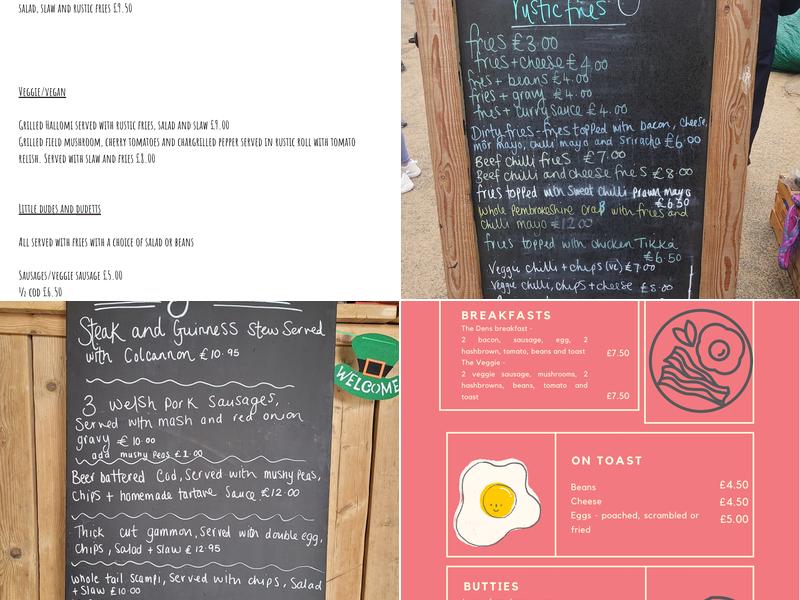 SALAD, SLAW AND RUSTIC FRIES £9.50
VEGGIE/VEGAN
GRILLED HALLOMI SERVED WITH RUSTIC FRIES, SALAD AND SLAW £9.00
GRILLED FIELD MUSHROOM, CHERRY TOMATOES AND CHARGRILLED PEPPER SERVED IN RUSTIC ROLL WITH TOMATO
RELISH. SERVED WITH SLAW AND FRIES £8.00
LITTLE DUDES AND DUDETTS
ALL SERVED WITH FRIES WITH A CHOICE OF SALAD OR BEANS
SAUSAGES/VEGGIE SAUSAGE £5.00
½ COD £6.50
rustic fries
fries £3.00
fries + cheese £4.00
fries + beans £4.00
fries + gravy £4.00
fries + curry sauce £4.00
Dirty fries - fries topped with bacon, cheese,
mor mayo, chilli mayo and sriracha £6.00
Beef chilli fries £7.00
Beef chilli and cheese fries £8.00
fries topped with sweet chilli prawn mayo
£6.50
whole Pembrokeshire crab with fries and
chilli mayo £12.00
fries topped with chicken Tikka
£6.50
Veggie chilli + chips (ve) £7.00
veggie chilli, chips + cheese £8.00
Steak and Guinness Stew Served
with Colcannon £10.95
3 Welsh Pork Sausages,
Served with mash and red onion
gravy £10.00
add mushy peas £1.00
Beer battered Cod, Served with mushy peas,
chips + homemade tartare sauce £12.00
Thick cut gammon, Served with double egg,
chips, Salad + Slaw £12.95
whole tail scampi, served with chips, Salad
+ Slaw £10.00
WELCOME
BREAKFASTS
The Dens breakfast -
2 bacon, sausage, egg, 2
hashbrown, tomato, beans and toast £7.50
The Veggie -
2 veggie sausage, mushrooms, 2
hashbrowns, beans, tomato and
toast £7.50
ON TOAST
Beans £4.50
Cheese £4.50
Eggs - poached, scrambled or £5.00
fried
BUTTIES